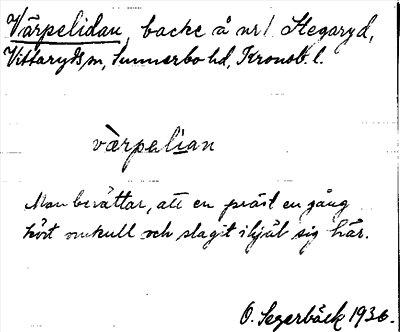 Värpelidan, backe å nr 1 Stegaryd,
Vittaryds sn, Sunnerbo hd, Kronob. l.
värpalian
Man berättar, att en präst en gång
kört omkull och slagit ihjäl sig här.
O. Segerbäck 1936.